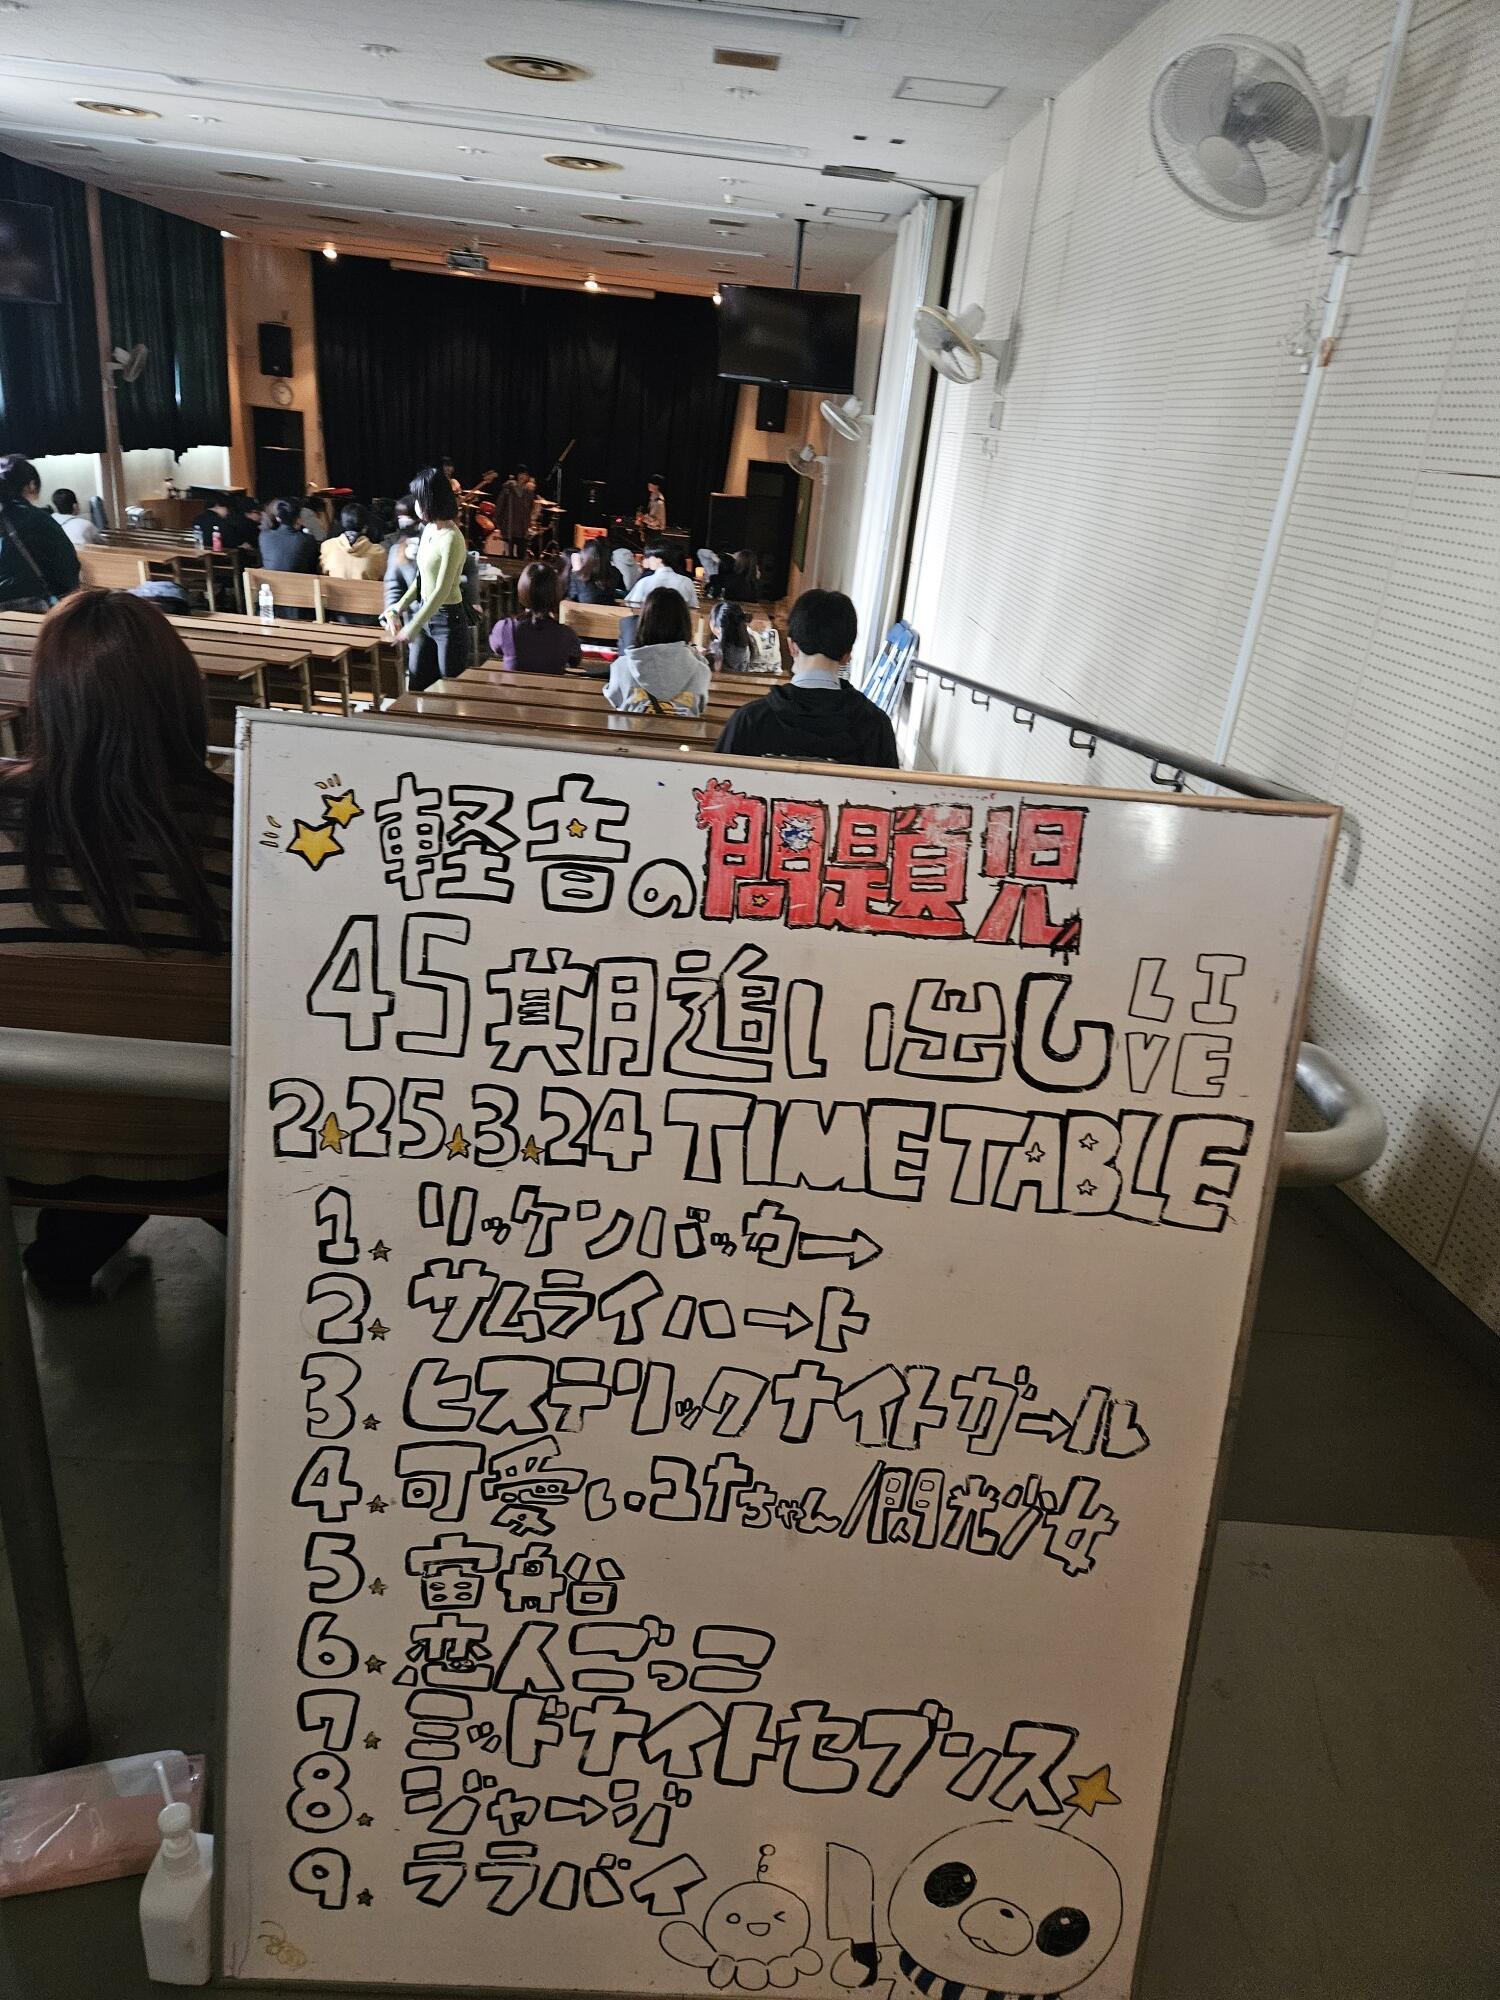 軽音の問題児
45期追い出し LIVE
2.25.3.24 TIME TABLE
1. リッケンバッカー
2. サムライハート
3. ヒステリックナイトガール
4. 可愛いユナちゃん/閃光少女
5. 宙船
6. 恋人ごっこ
7. ミッドナイトセブンス
8. ジャージ
9. ララバイ